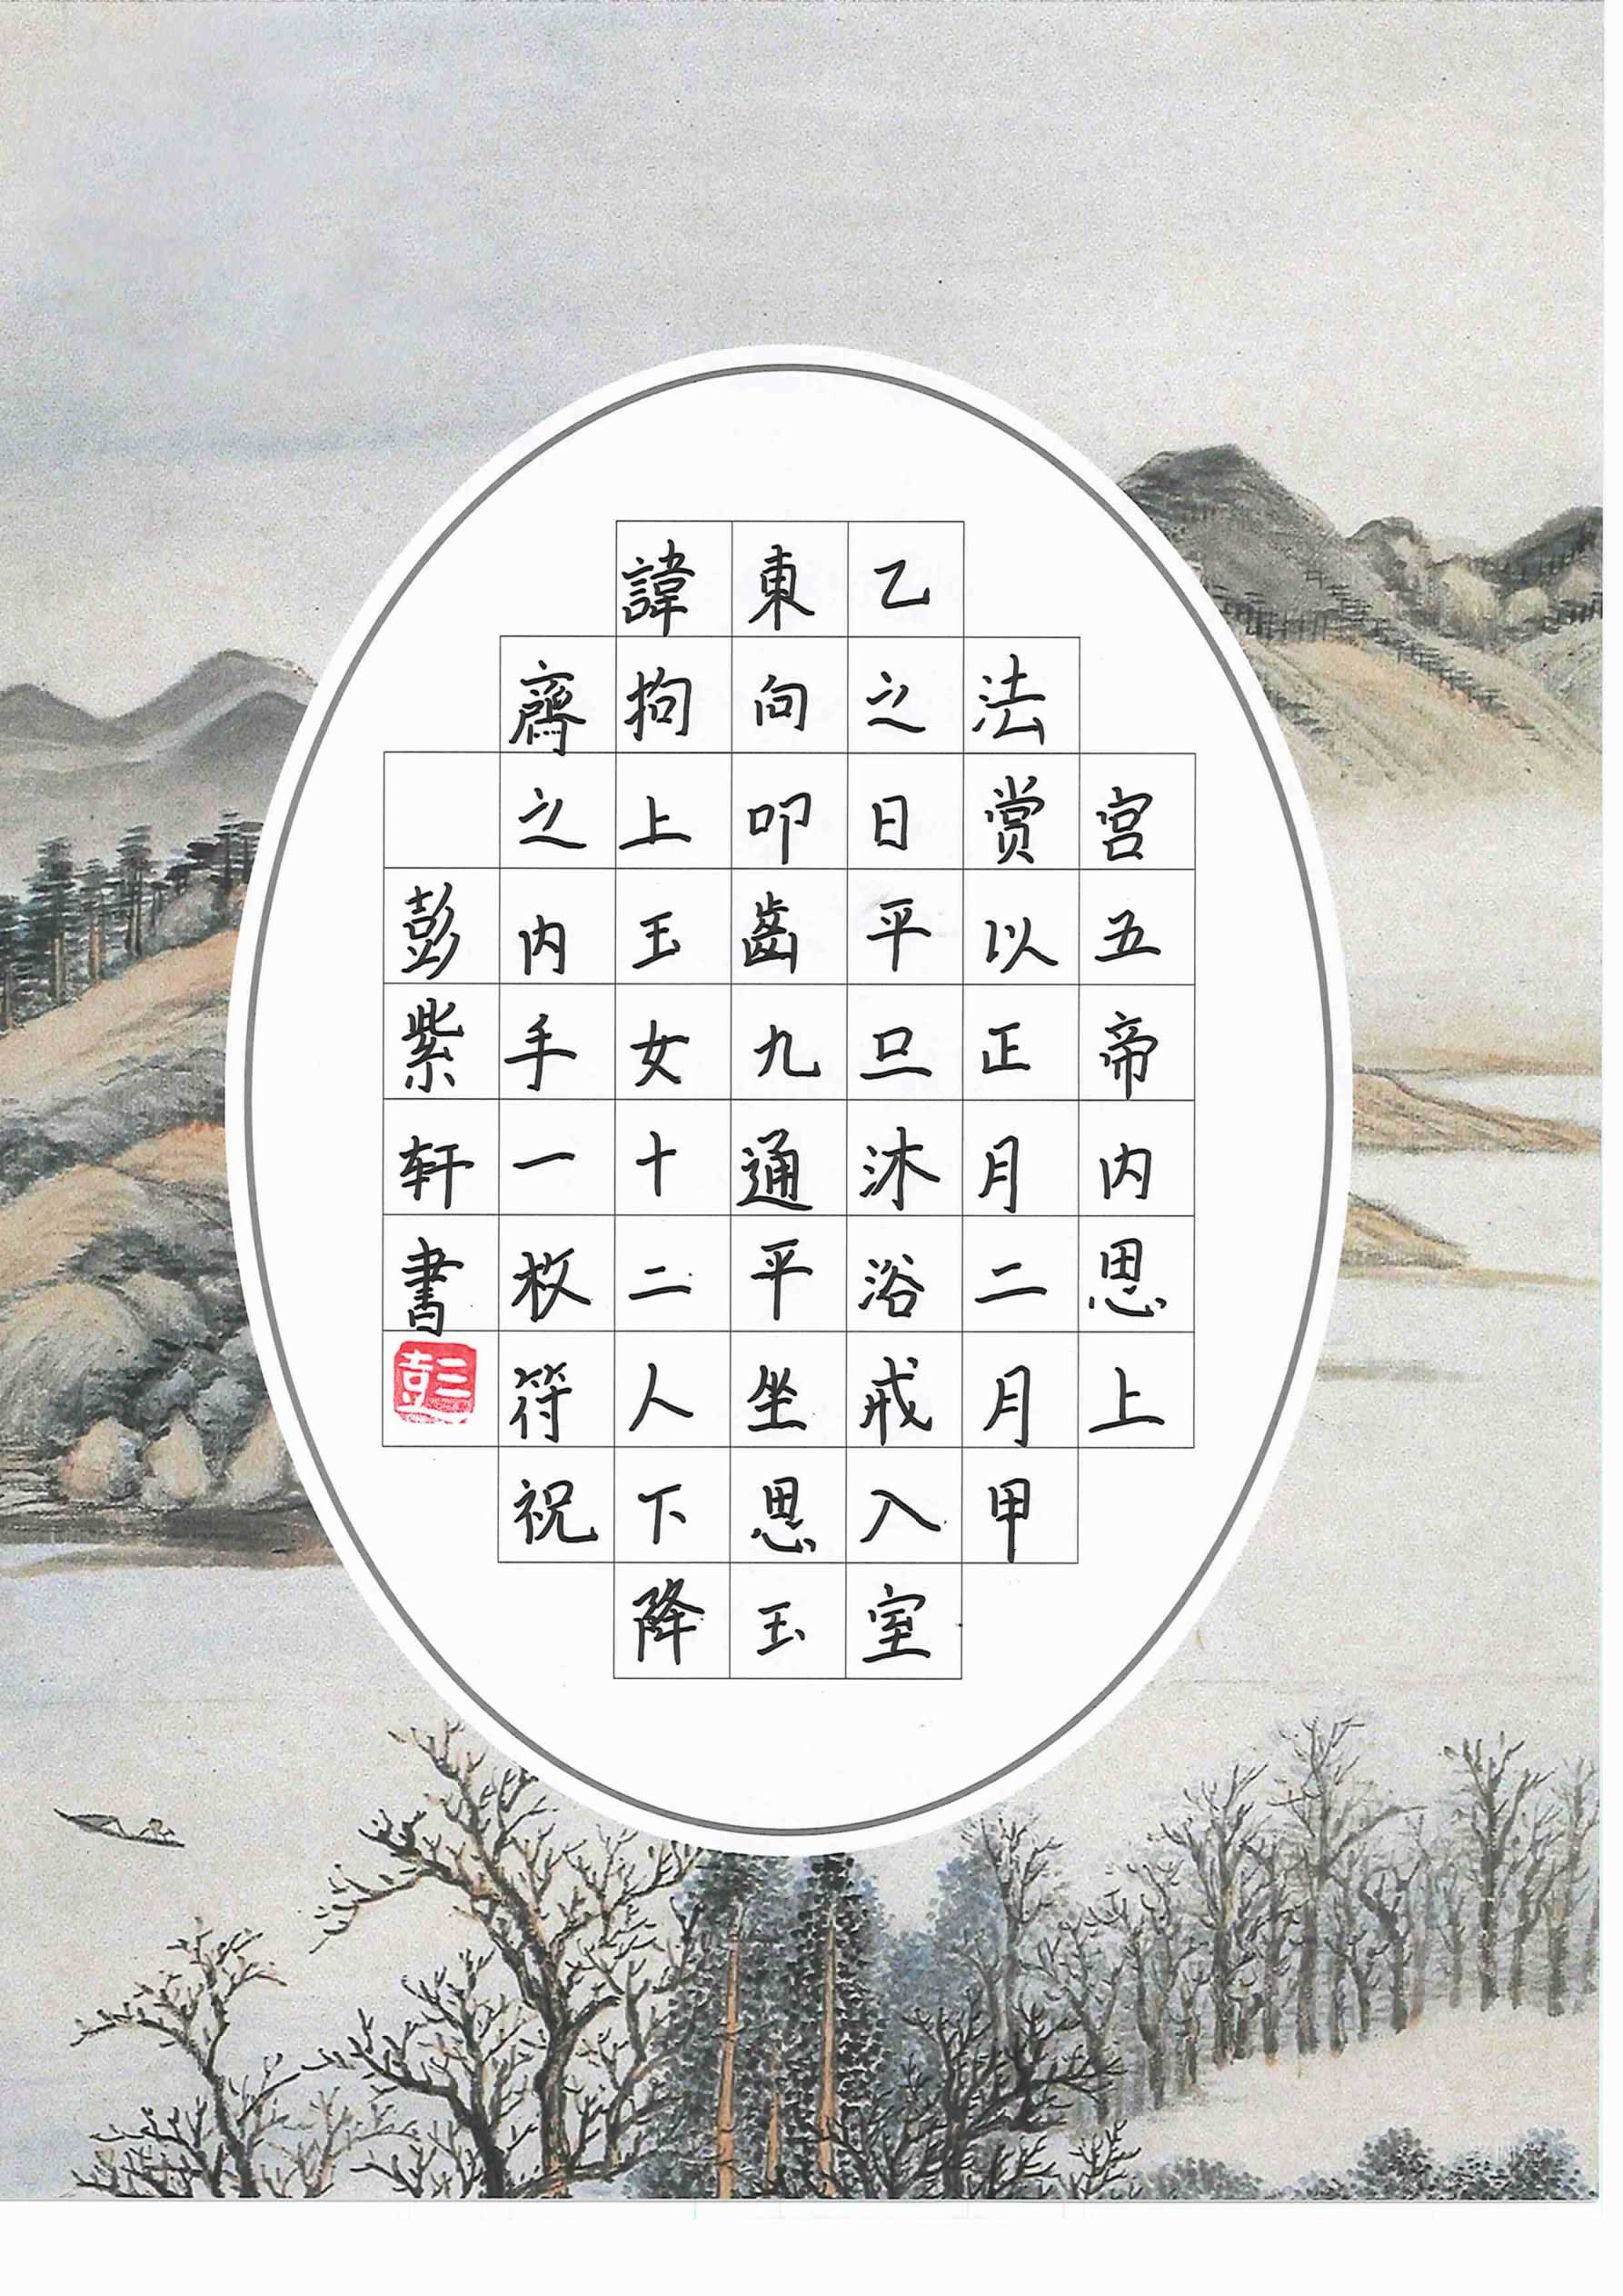 宫五帝内思上
法赏以正月二月甲
乙之日平旦沐浴戒入室
東向叩齒九通平坐思玉
諱拘上玉女十二人下降
齎之内手一枚符祝
彭紫轩書
彭